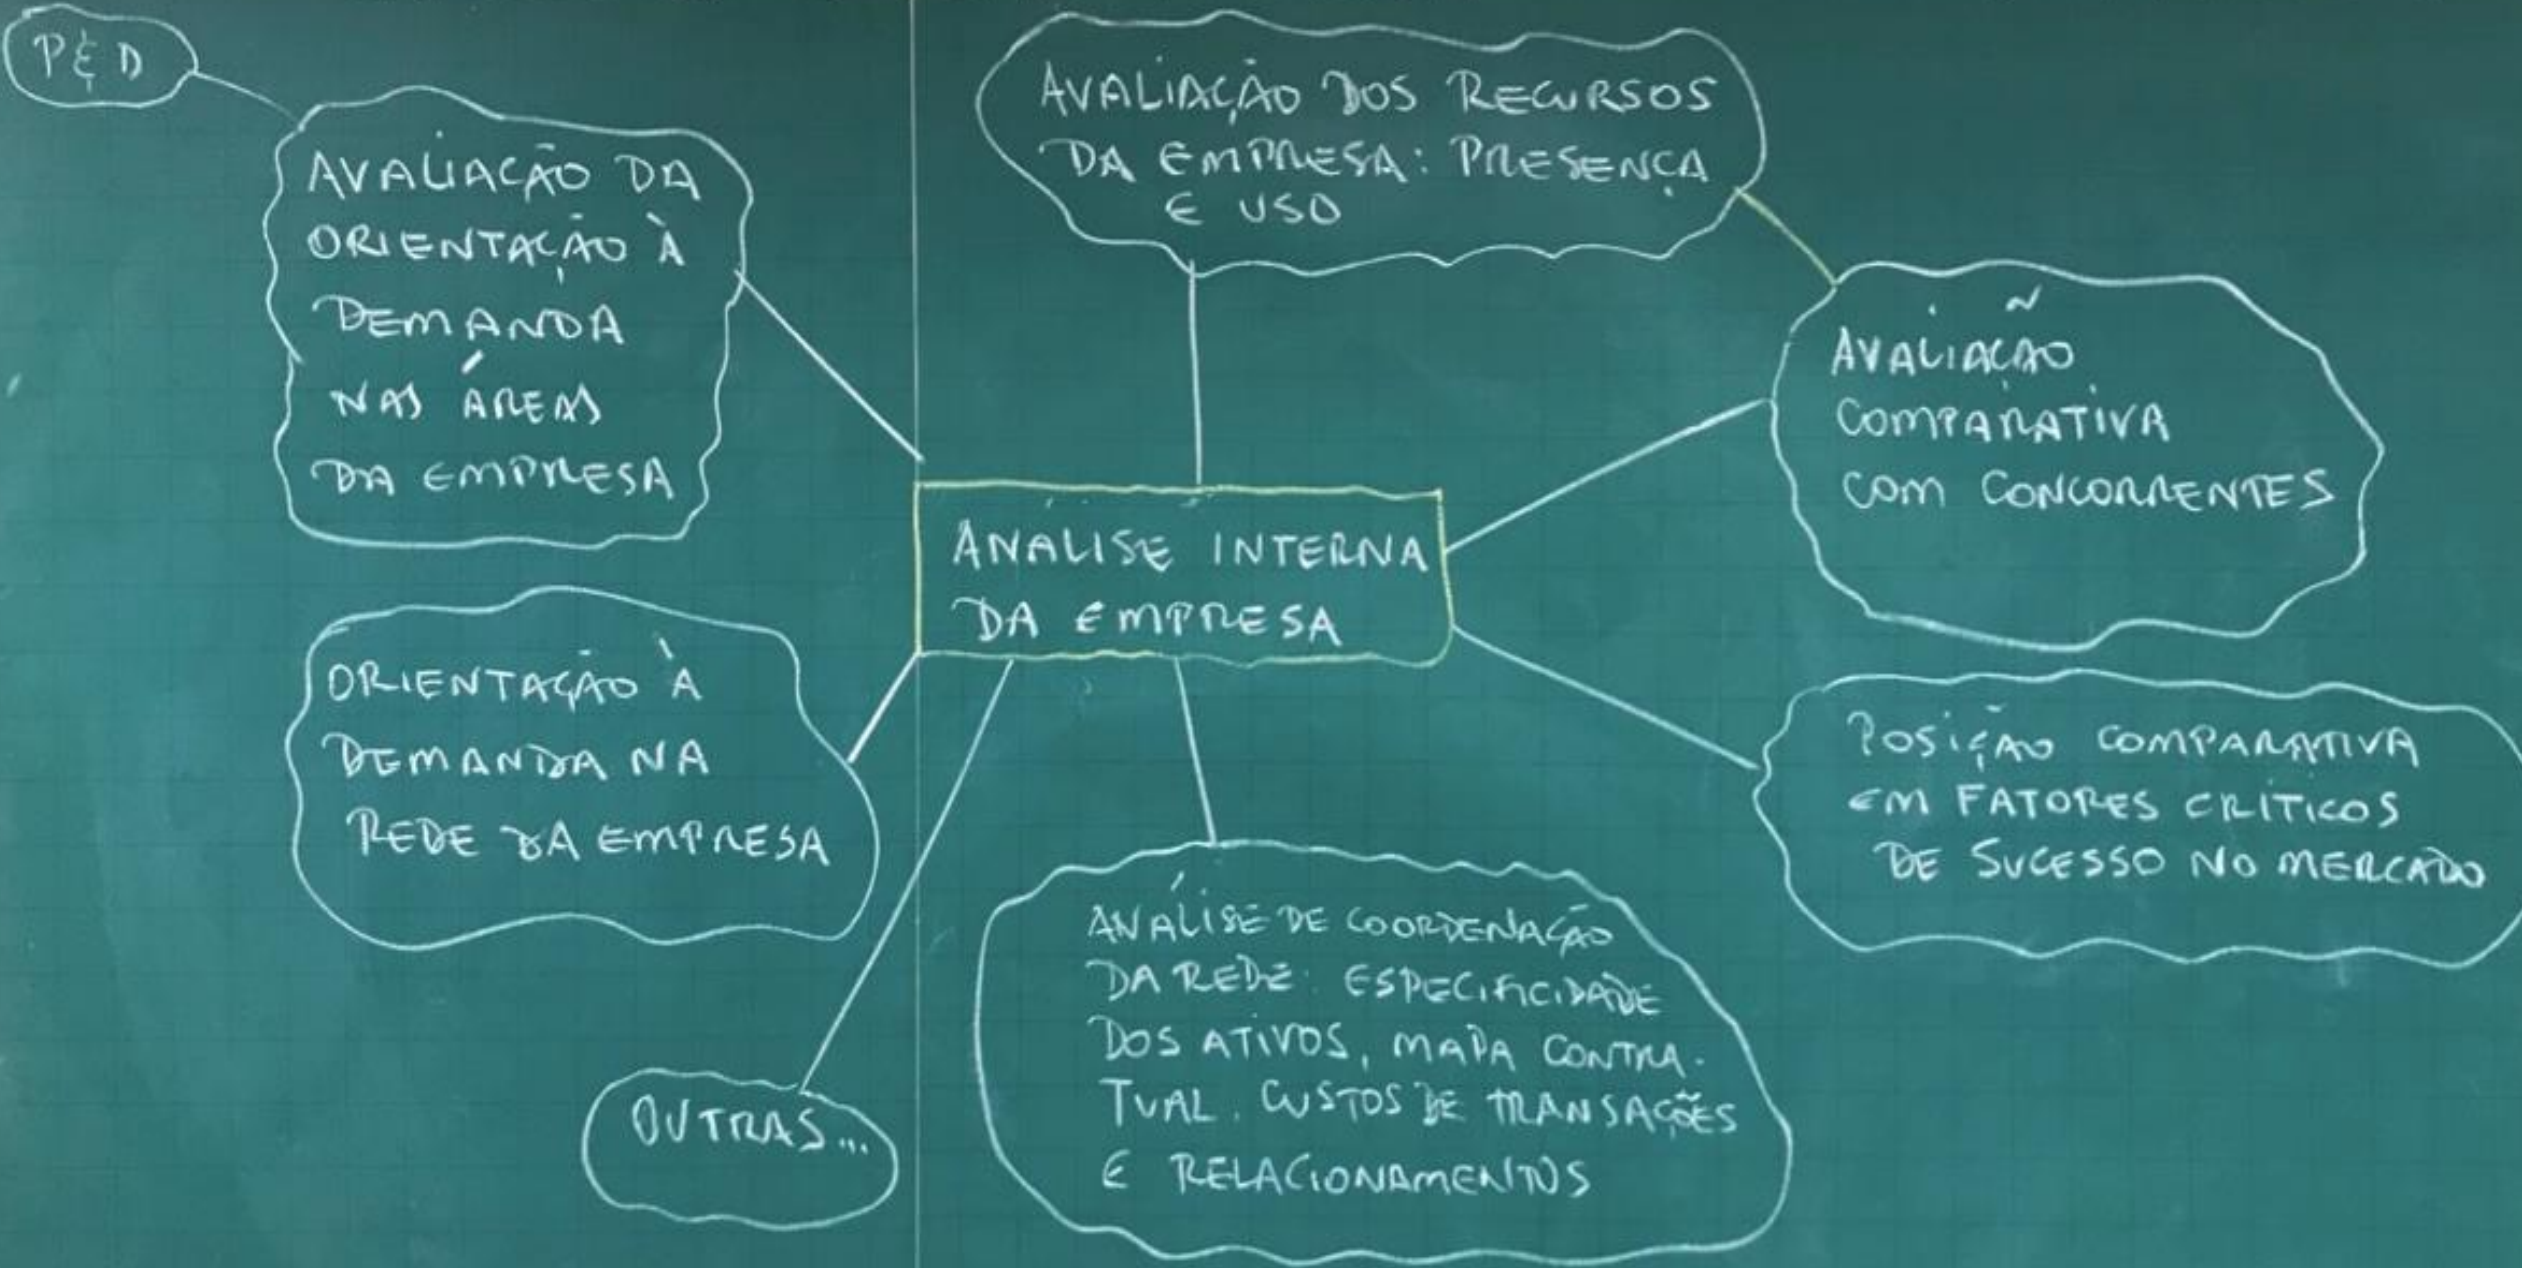 P&D
AVALIAÇÃO DA
ORIENTAÇÃO À
DEMANDA
NAS ÁREAS
DA EMPRESA
AVALIAÇÃO DOS RECURSOS
DA EMPRESA: PRESENÇA
E USO
AVALIAÇÃO
COMPARATIVA
COM CONCORRENTES
ANALISE INTERNA
DA EMPRESA
ORIENTAÇÃO À
DEMANDA NA
REDE DA EMPRESA
POSIÇÃO COMPARATIVA
EM FATORES CRÍTICOS
DE SUCESSO NO MERCADO
OUTRAS...
ANÁLISE DE COORDENAÇÃO
DA REDE: ESPECIFICIDADE
DOS ATIVOS, MAPA CONTRA-
TUAL, CUSTOS DE TRANSAÇÕES
E RELACIONAMENTOS